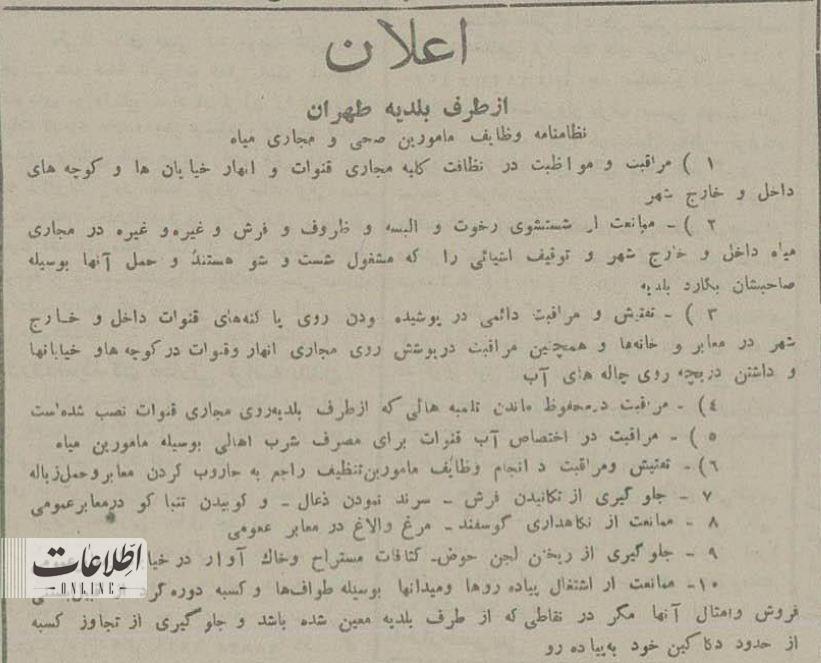 اعلان
از طرف بلدیه طهران
نظامنامه وظایف مامورین صحی و مجاری میاه
۱ ) مراقبت و مواظبت در نظافت کلیه مجاری قنوات و انهار خیابان ها و کوچه های
داخل و خارج شهر
۲ ) - ممانعت از شستشوی رخوت و البسه و ظروف و فرش و غیره و غیره در مجاری
میاه داخل و خارج شهر و توقیف اشیائی را که مشغول شست و شو هستند و حمل آنها بوسیله
صاحبشان بگارد بلدیه
۳ ) - تفتیش و مراقبت دائمی در پوشیده ودن روی پا کنه‌های قنوات داخل و خارج
شهر در معابر و خانه‌ها و همچنین مراقبت درپوشش روی مجاری انهار وقنوات در کوچه هاو خیابانها
و داشتن دریچه روی چاله های آب
٤) - مراقبت درمحفوظ ماندن تلمبه هائی که ازطرف بلدیه‌روی مجاری قنوات نصب شده‌است
٥ ) - مراقبت در اختصاص آب قنوات برای مصرف شرب اهالی بوسیله مامورین میاه
٦) - تفتیش ومراقبت د انجام وظایف مامورین‌تنظیف راجع به جاروب کردن معابر وحمل‌زباله
۷ - جلو گیری از تکانیدن فرش - سرند نمودن ذغال - و کوبیدن تنبا کو درمعابرعمومی
۸ - ممانعت از نگاهداری گوسفند - مرغ والاغ در معابر عمومی
۹ - جلو گیری از ریختن لجن حوض - کثافات مستراح وخاك آوار در
۱۰ - ممانعت از اشتغال پیاده روها ومیدانها بوسیله طوافها و کسبه دوره گرد
فروش وامثال آنها مگر در نقاطی که از طرف بلدیه معین شده باشد و جلو گیری از تجاوز کسبه
از حدود دکاکین خود به‌پیاده رو
اطلاعات
ONLINE